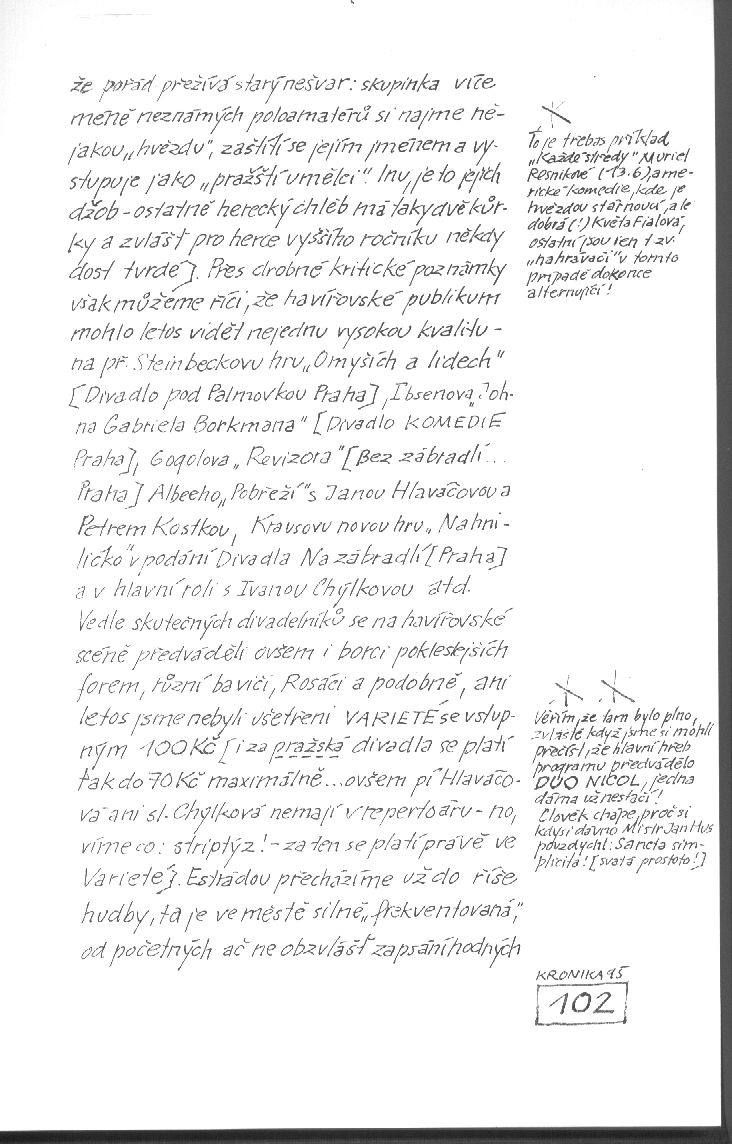 že pořád přežívá starý nešvar: skupinka více
méně neznámých poloamatérů si najme ně-
jakou „hvězdu", zaštítí se jejím jménem a vy-
stupuje jako „pražští umělci". Inu, je to jejich
džob - ostatně herecký chléb má taky dvě kůr-
ky a zvlášť pro herce vyššího ročníku někdy
dost tvrdé]. Přes drobné kritické poznámky
však můžeme říci, že havířovské publikum
mohlo letos vidět nejednu vysokou kvalitu -
na př. Steinbeckovu hru „O myších a lidech"
[Divadlo pod Palmovkou Praha], Ibsenova „Joh-
na Gabriela Borkmana" [Divadlo KOMEDIE
Praha], Gogolova „Revizora" [Bez zábradlí...
Praha] Albeeho „Pobřeží" s Janou Hlaváčovou a
Petrem Kostkou, Krausovu novou hru „Nahni-
ličko" v podání Divadla Na zábradlí [Praha]
a v hlavní roli s Ivanou Chýlkovou atd.
Vedle skutečných divadelníků se na havířovské
scéně předváděli ovšem i borci pokleslejších
forem, různí baviči, Rosáci a podobně, ani
letos jsme nebyli ušetřeni VARIETÉ se vstup-
ným 100 Kč [i za pražská divadla se platí
tak do 70 Kč maximálně... ovšem pí Hlaváčo-
vá ani sl. Chýlková nemají v repertoáru - no,
víme co: striptýz! - za ten se platí právě ve
Varieté]. Estrádou přecházíme už do říše
hudby, ta je ve městě silně „frekventovaná",
od početných ač ne obzvlášť zapsáníhodných
To je třebas příklad
„Každo středy" Muriel
Resnikné (13.6), ame-
rické komedie, kde je
hvězdou stárnoucí, ale
dobrá (!) Květa Fialová,
ostatní jsou jen t zv.
„nahrávači" v tomto
případě dokonce
alternující!
Věřím, že tam bylo plno,
zvláště když jsme si mohli
přečíst, že hlavní hřeb
programu předvádělo
DUO NICOL, jedna
dáma už nestačí!
Člověk chápe, proč si
kdysi dávno Mistr Jan Hus
povzdychl: Sancta sim-
plicita! [svatá prostoto!]
KRONIKA 95
102